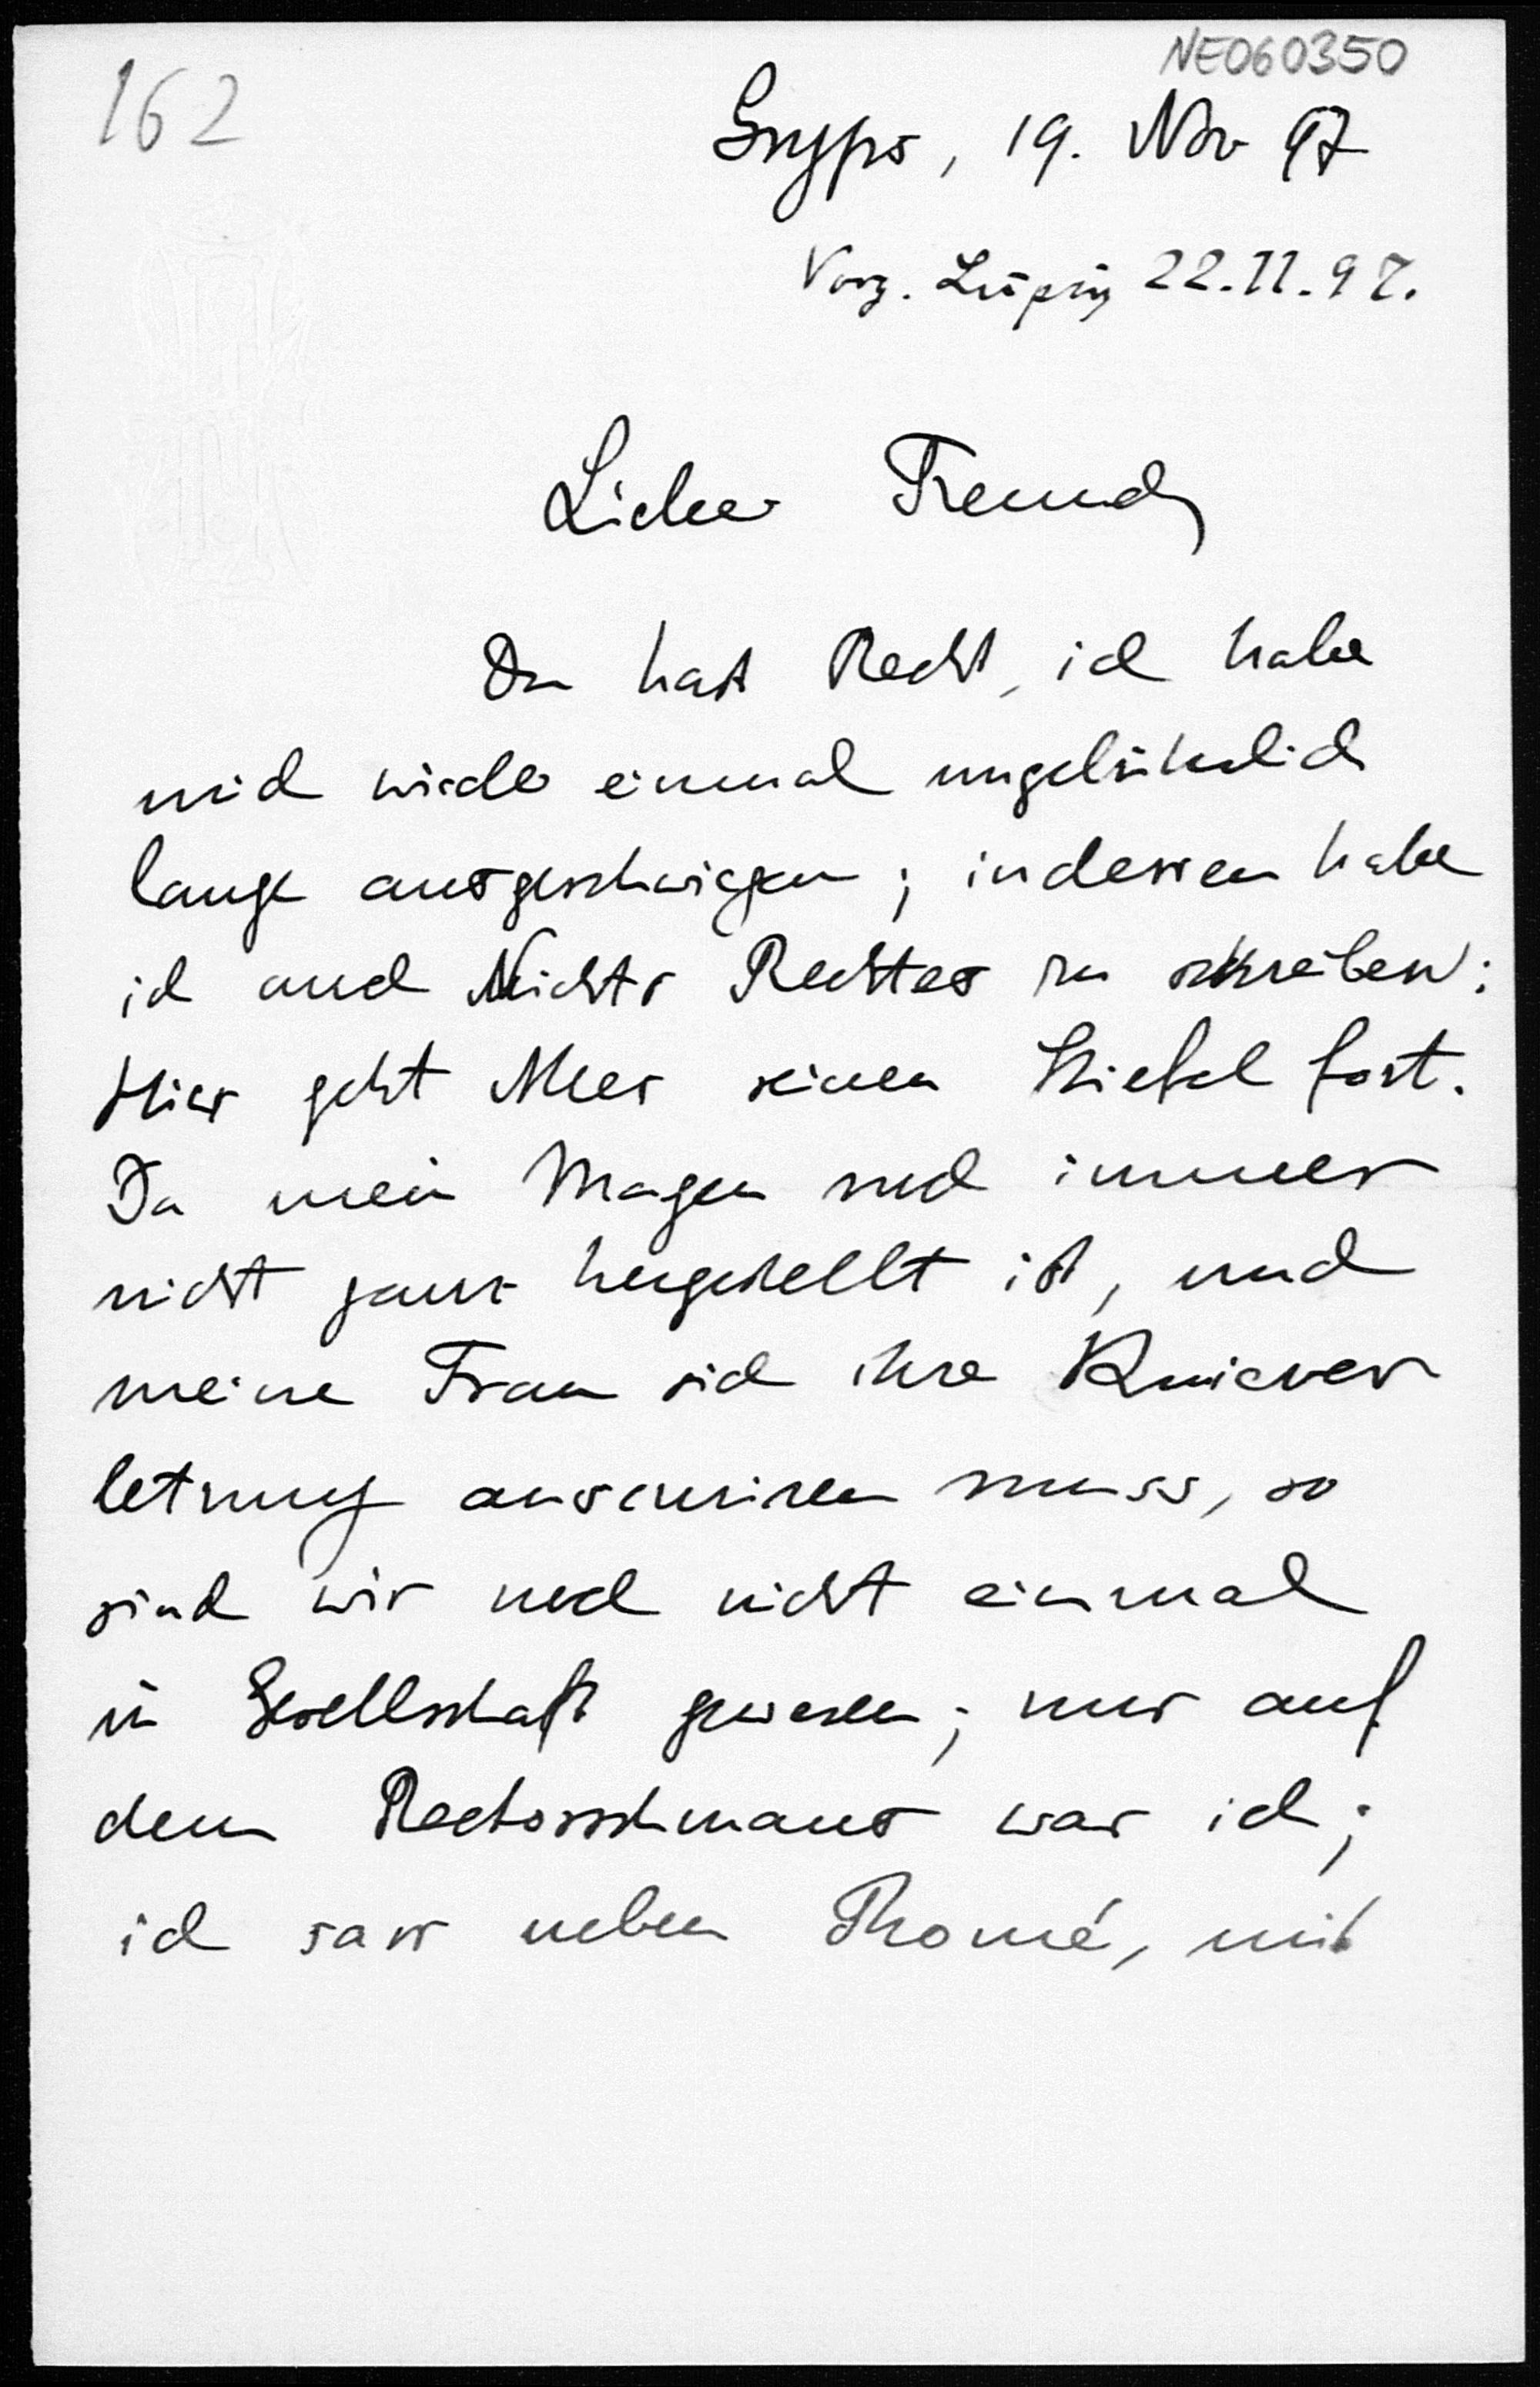 NE060350
162
Gryps, 19. Nov 97
Vorz. Leipzig 22.11.97.
Lieber Freund
Du hast Recht, ich habe
mich wieder einmal ungebührlich
lange ausgeschwiegen; indessen habe
ich auch Nichts Rechtes zu schreiben:
Hier geht Alles seinen Stiefel fort.
Da mein Magen noch immer
nicht ganz hergestellt ist, und
meine Frau sich ihre Kniever
letzung auscuriren muss, so
sind wir noch nicht einmal
in Gesellschaft gewesen; nur auf
dem Rectorschmaus war ich;
ich sass neben Thomé, mit